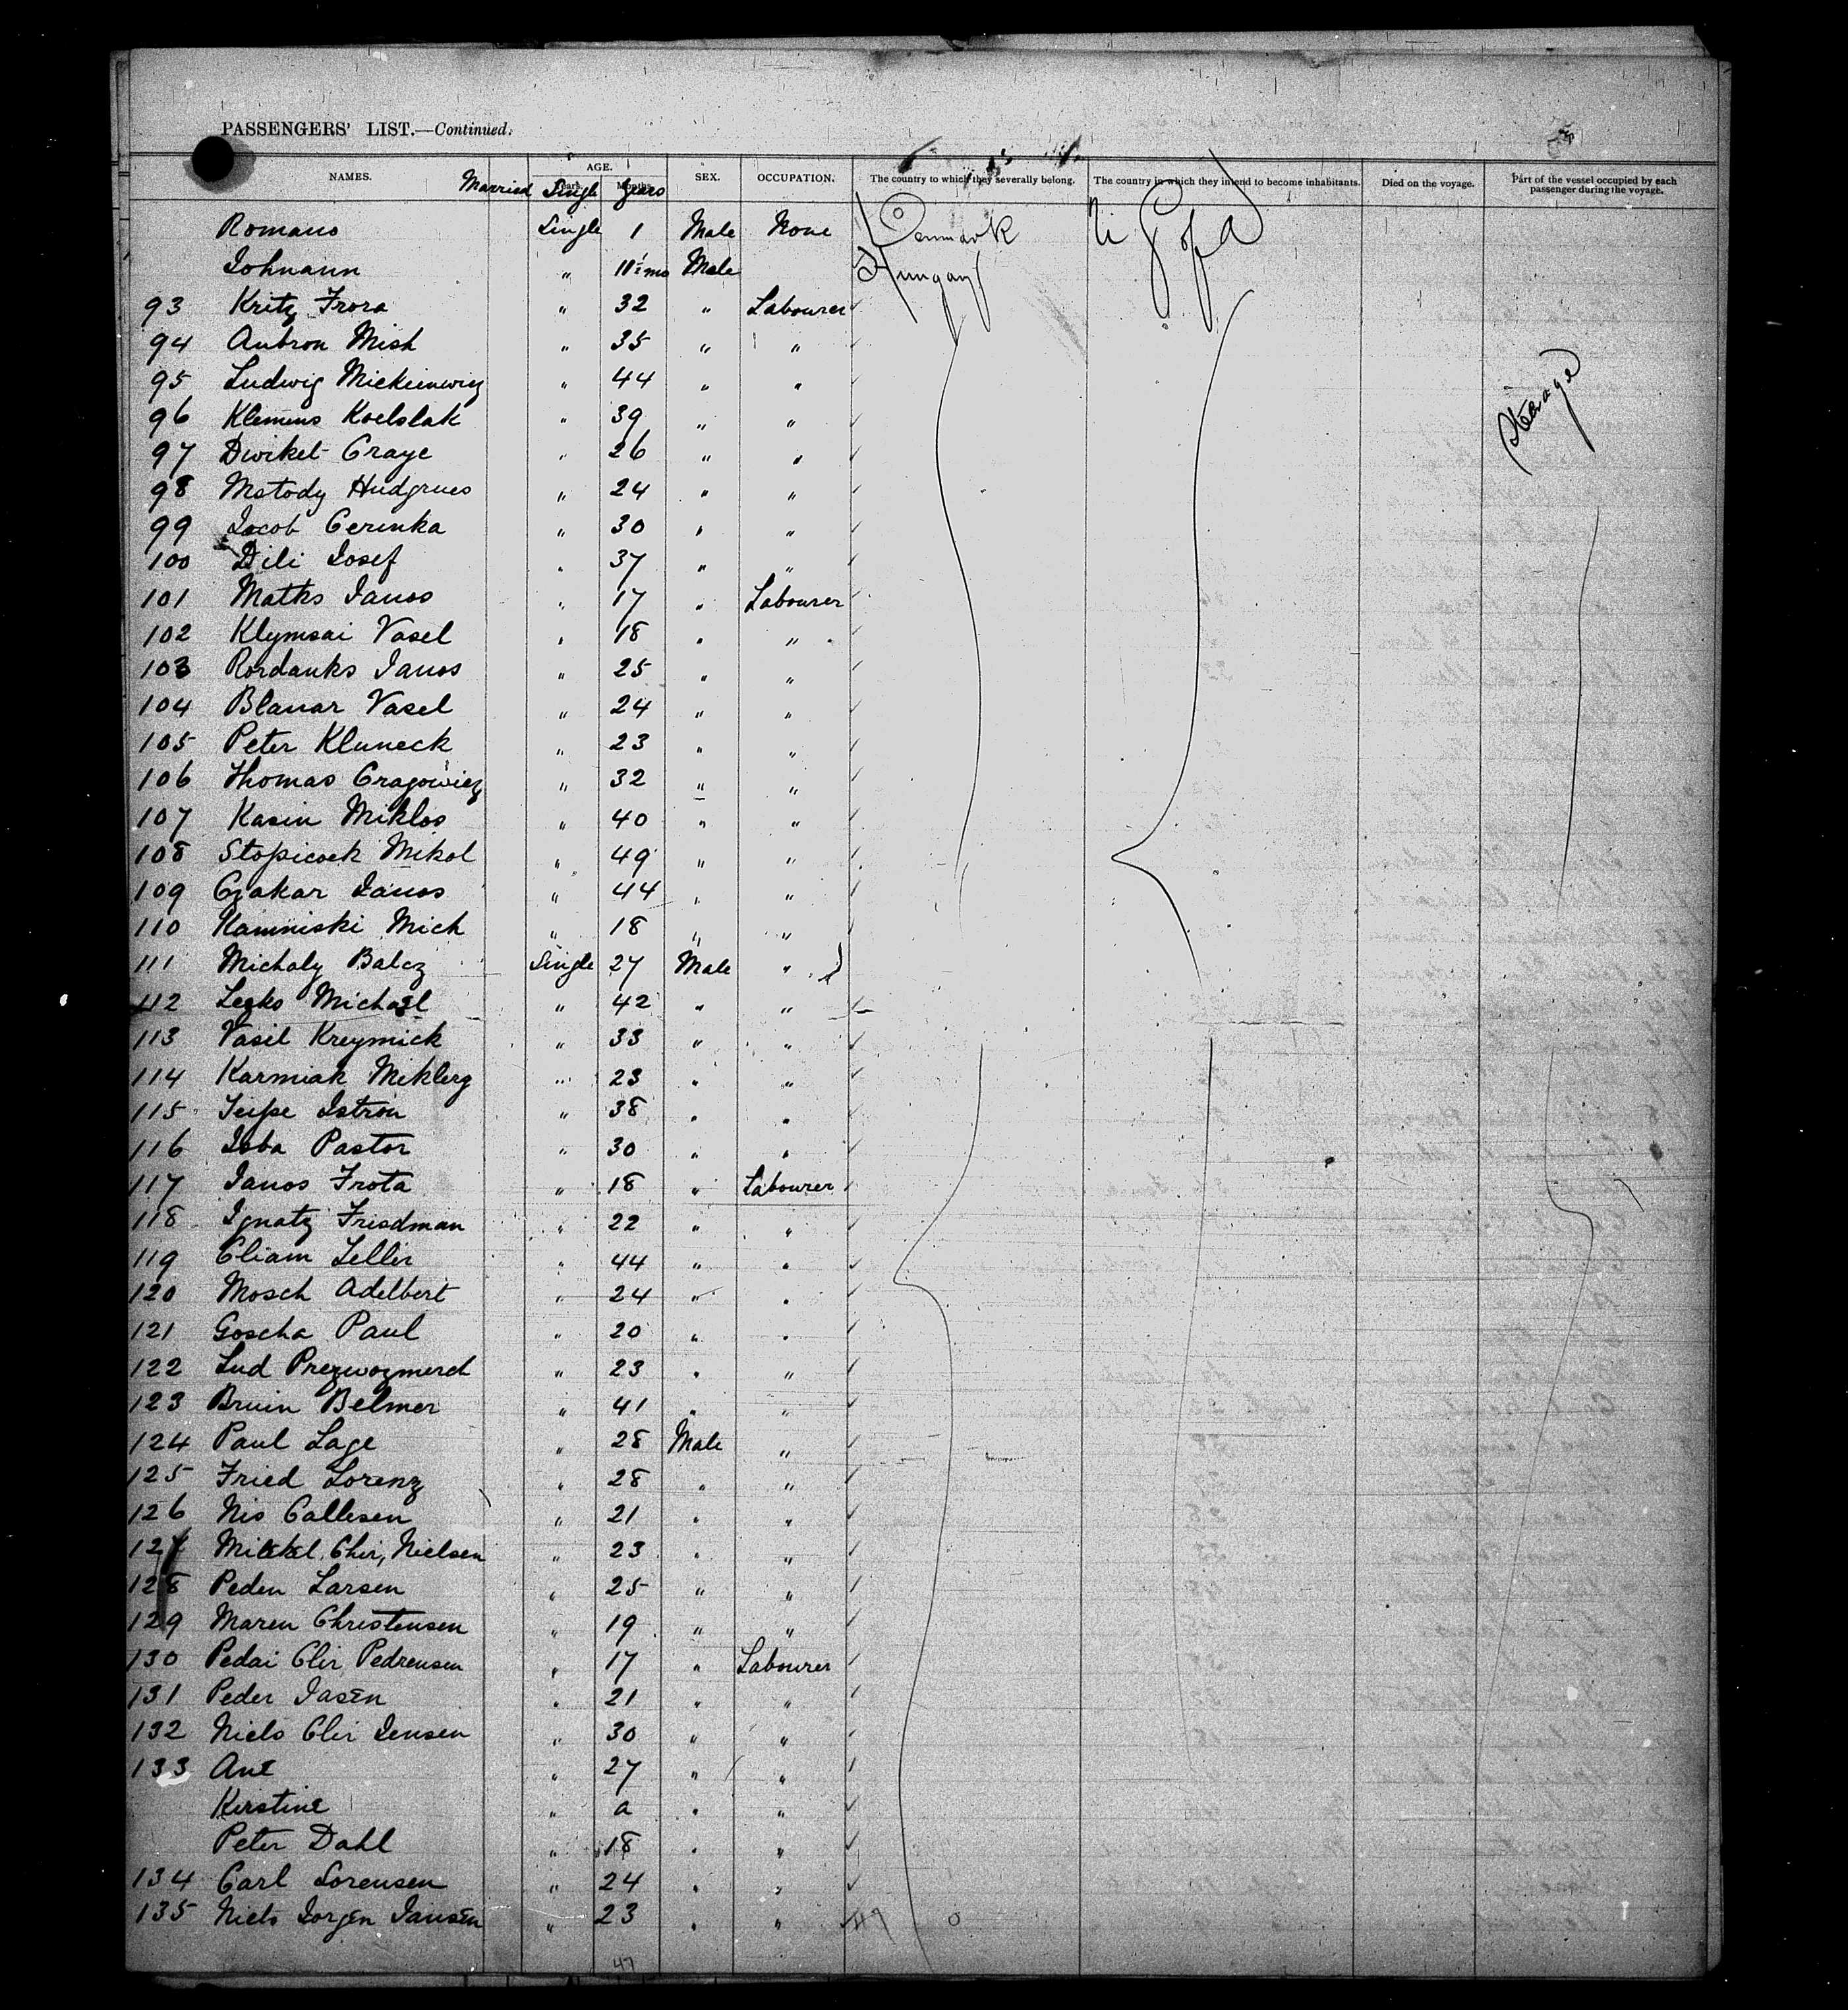 PASSENGERS' LIST.—Continued.
NAMES. AGE. SEX. OCCUPATION. The country to which they severally belong. The country in which they intend to become inhabitants. Died on the voyage. Part of the vessel occupied by each passenger during the voyage.
Married Single Years
Romano Single 1 Male None Denmark U S of A
Johnann " 11 mo Male Hungary
93 Kritz Frora " 32 " Labourer
94 Aubron Mish " 35 " "
95 Ludwig Mickienwicz " 44 " " Steerage
96 Klemens Koelslak " 39 " "
97 Dwikel Craye " 26 " "
98 Metody Hudgrues " 24 " "
99 Jacob Cerinka " 30 " "
100 Dili Josef " 37 " "
101 Matks Janos " 17 " Labourer
102 Klymsai Vasel " 18 " "
103 Rordanks Janos " 25 " "
104 Blanar Vasel " 24 " "
105 Peter Kluneck " 23 " "
106 Thomas Cragowicz " 32 " "
107 Kasin Miklos " 40 " "
108 Stopicock Mikol " 49 " "
109 Czakar Janos " 44 " "
110 Kaminiski Mich " 18 " "
111 Michaly Balcz Single 27 Male "
112 Lesko Michael " 42 " "
113 Vasil Kreymick " 33 " "
114 Karmiak Miklerg " 23 " "
115 Istron " 38 " "
116 Joba Pastor " 30 " "
117 Janos Frota " 18 " Labourer
118 Ignatz Friedman " 22 " "
119 Eliam Teller " 44 " "
120 Mosch Adelbert " 24 " "
121 Goscha Paul " 20 " "
122 Lud Prezwozmerch " 23 " "
123 Bruin Belmer " 41 " "
124 Paul Lage " 28 Male "
125 Fried Lorenz " 28 " "
126 Nis Callesen " 21 " "
127 Mikkel Chir, Nielsen " 23 " "
128 Peden Larsen " 25 " "
129 Maren Christensen " 19 " "
130 Pedai Chir Pedrensen " 17 " Labourer
131 Peder Jasen " 21 " "
132 Niels Chir Jensen " 30 " "
133 Ane " 27 " "
Kirstine " a " "
Peter Dahl " 18 " "
134 Carl Sorensen " 24 " "
135 Niels Jorgen Jansen " 23 " "
47